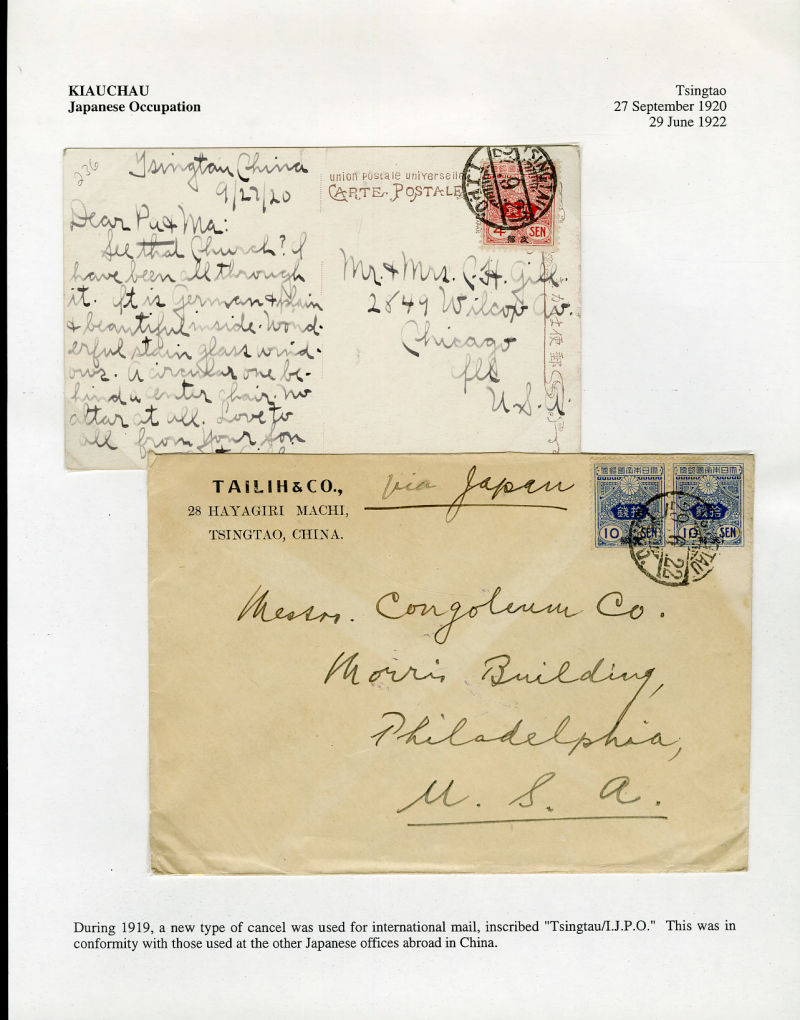 KIAUCHAU
Japanese Occupation
Tsingtao
27 September 1920
29 June 1922
236
Tsingtau China
9/27/20
Dear Pa & Ma:
See that Church? I
have been all through
it. It is German & plain
& beautiful inside. Wond-
erful stain glass wind-
ows. A circular one be-
hind a center chair. No
altar at all. Love to
all from your son
union postale universelle
CARTE POSTALE
TSINGTAU
I.J.P.O.
4 SEN
Mr. & Mrs. C. H. Gill
2849 Wilcox Av.
Chicago
Ill
U.S.A.
TAILIH & CO.,
28 HAYAGIRI MACHI,
TSINGTAO, CHINA.
via Japan
大日本帝國郵便
拾錢
10 SEN
大日本帝國郵便
拾錢
10 SEN
29 6 22
Messrs. Congoleum Co.
Morris Building,
Philadelphia,
U. S. A.
During 1919, a new type of cancel was used for international mail, inscribed "Tsingtau/I.J.P.O." This was in
conformity with those used at the other Japanese offices abroad in China.